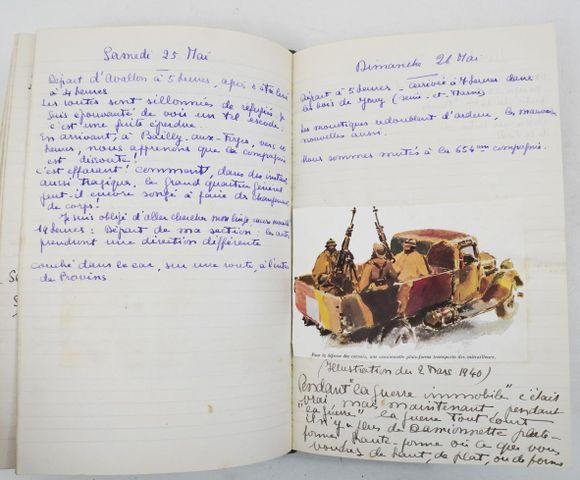 Samedi 25 Mai
Départ d'Avallon à 5 heures, après s'être levé
à 4 heures
Les routes sont sillonnées de réfugiés. Je
suis épouvanté de vois un tel exode;
c'est une fuite éperdue..
En arrivant, à Bailly-aux-Forges, vers 10
heures, nous apprenons que la compagnie
est dissoute!
C'est effarant! Comment, dans des instants
aussi tragiques, le Grand quartier général
peut-il encore songé à faire des changements
de corps!
Je suis obligé d'aller chercher mon linge encore mouillé
18 heures: Départ de ma section: les autres
prendront une direction différente
Couché dans le car, sur une route, à l'entrée
de Provins
Dimanche 26 Mai
Départ à 5 heures - arrivée à 7 heures dans
les bois de Jouy (Seine-et-Marne)
Les moustiques redoublent d'ardeur, les mauvaises
nouvelles aussi.
Nous sommes mutés à la 654ème compagnie.
Pour la défense des convois, une camionnette plate-forme transporte des mitrailleurs.
(Illustration du 2 Mars 1940)
Pendant "la guerre immobile" c'était
vrai mais maintenant pendant
"la guerre" la guerre tout court
il n'y a plus de camionnette plate-
forme, haute-forme ou ce que vous
voudrez de haut, de plat, ou de forme